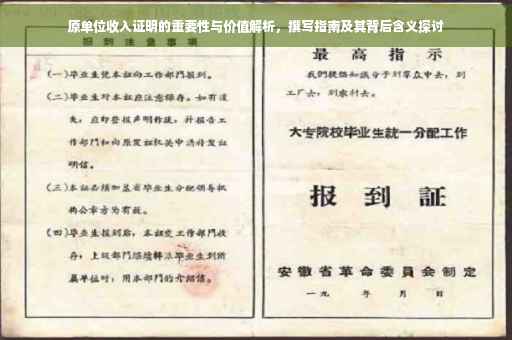 原单位收入证明的重要性与价值解析，撰写指南及其背后含义探讨
报到注意事项
(一)毕业生凭本证向工作部门报到。
(二)毕业生对本证应注意保存。如有遗
失，应即登报声明作废，并报告工
作部门和向原发证机关申请补发证
明信。
(三)本证必须加盖省毕业生分配领导机
构公章方为有效。
(四)毕业生报到后，本证交工作部门收
存；上级部门继续转派毕业生到所
属单位时，用本部门的介绍信。
最高指示
我们提倡知识分子到群众中去，到
工厂去，到农村去。
大专院校毕业生统一分配工作
报到证
安徽省革命委员会制定
一九 年 月 日